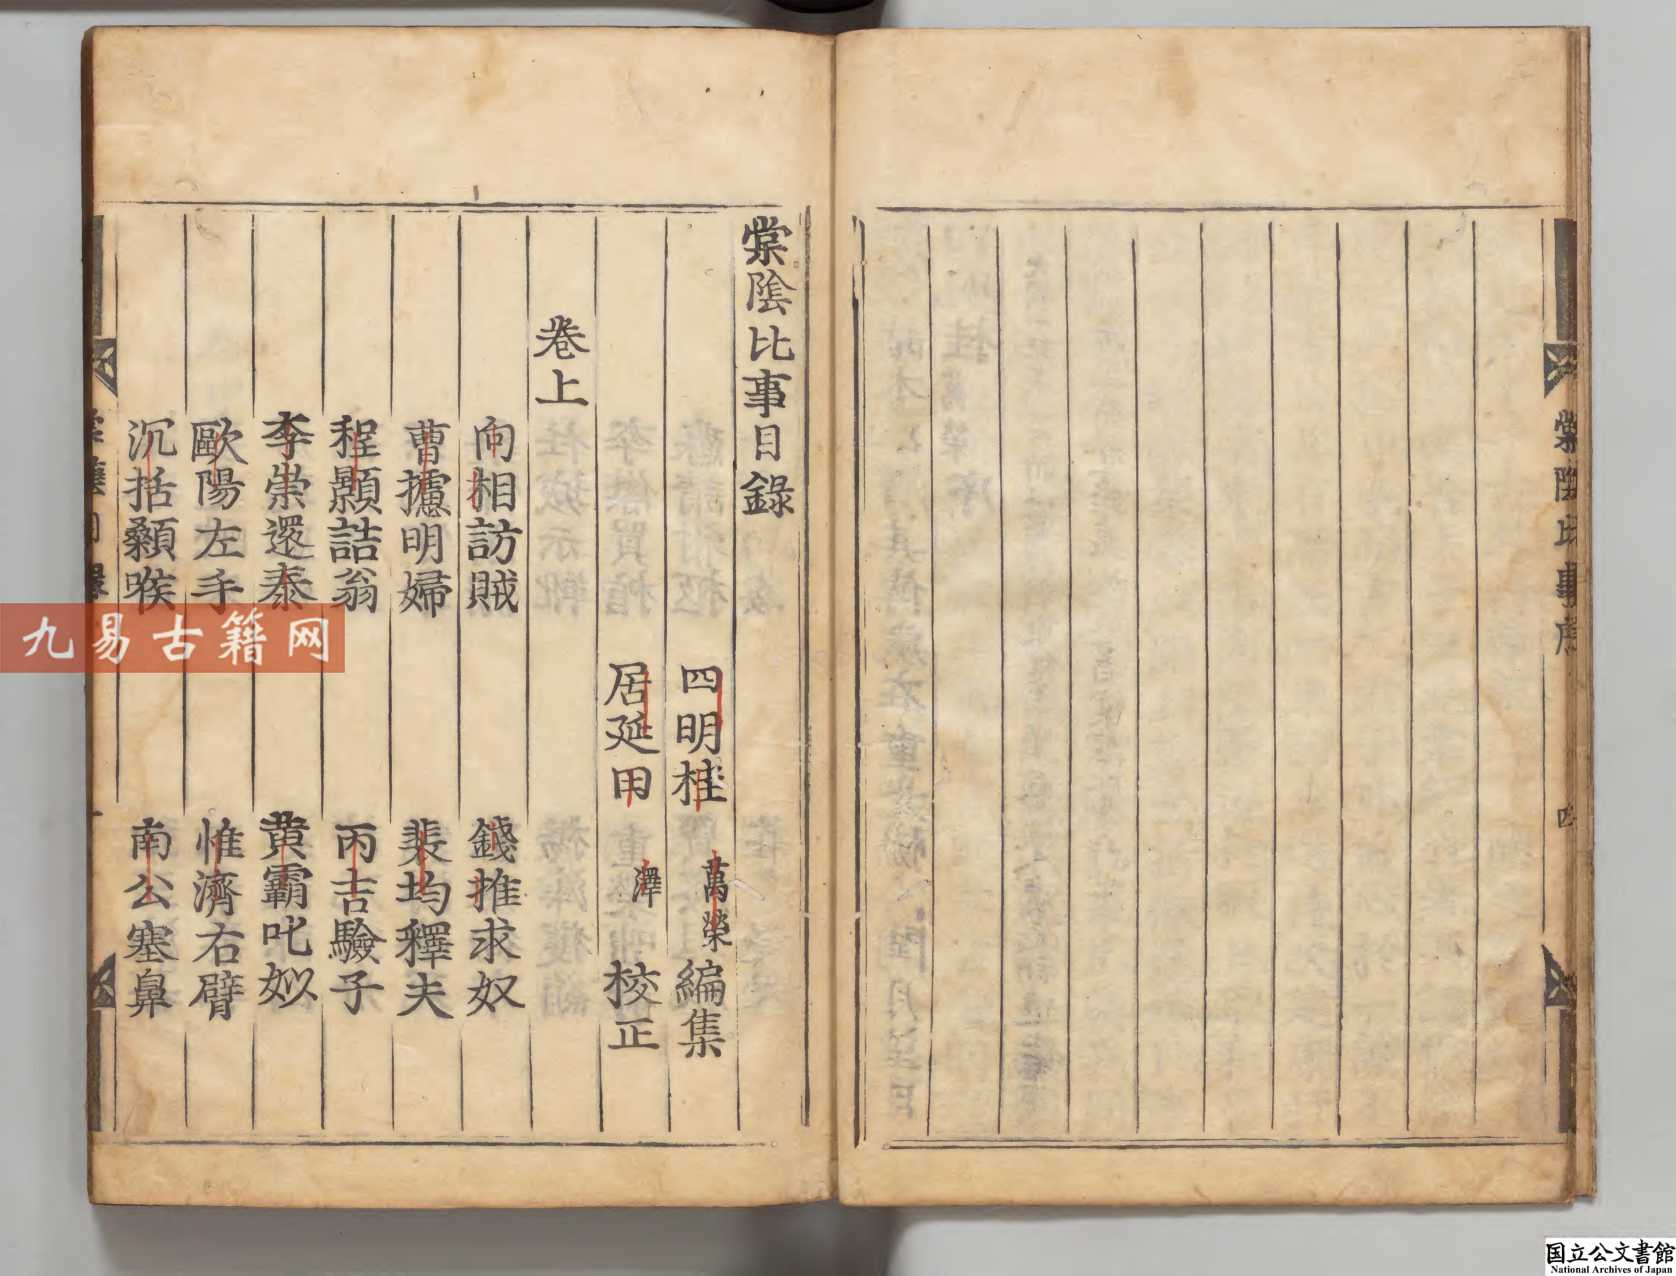 棠陰比事序
四
棠陰比事目錄
四明桂 萬榮 編集
居延田 澤 校正
卷上
向相訪賊 錢推求奴
曹攄明婦 裴均釋夫
程顥詰翁 丙吉驗子
李崇還泰 黃霸叱姒
歐陽左手 惟濟右臂
沉括顙喉 南公塞鼻
九易古籍网
国立公文書館
National Archives of Japan